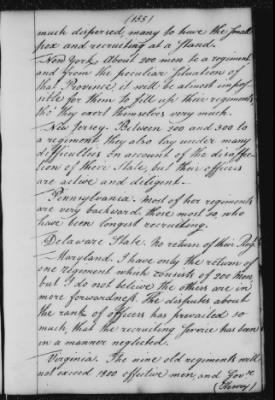 (155)
much dispersed, many to have the Small
pox and recruiting at a Stand.
New York. About 200 men to a regiment
and from the peculiar Situation of
that Province, it will be almost impos
sible for them to fill up their regiments
tho' they exert themselves very much.
New Jersey. Between 200 and 300 to
a regiment they also lay under many
difficulties on account of the disaffec
tion of their State, but their officers
are active and diligent.
Pennsylvania. Most of her regiments
are very backward, those most so, who
have been longest recruiting.
Delaware State. No return of their Regt
Maryland. I have only the return of
one regiment which consists of 200 men
but I do not believe the others are in
more forwardness. The disputes about
the rank of officers has prevailed so
much, that the recruiting Service has been
in a manner neglected.
Virginia. The nine old regiments will
not exceed 1800 effective men, and Govr
(Henry)